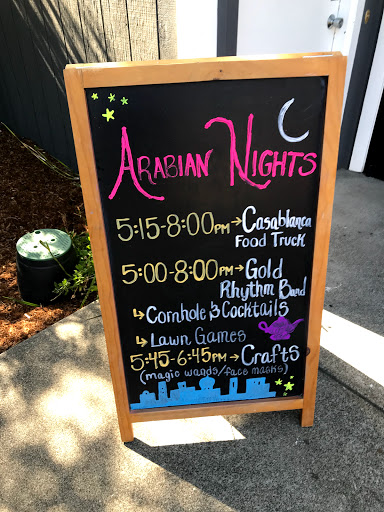 ARABIAN NIGHTS
5:15-8:00PM → Casablanca
Food Truck
5:00-8:00PM → Gold
Rhythm Band
↳ Cornhole & Cocktails
↳ Lawn Games
5:45-6:45PM → Crafts
(magic wands/face masks)